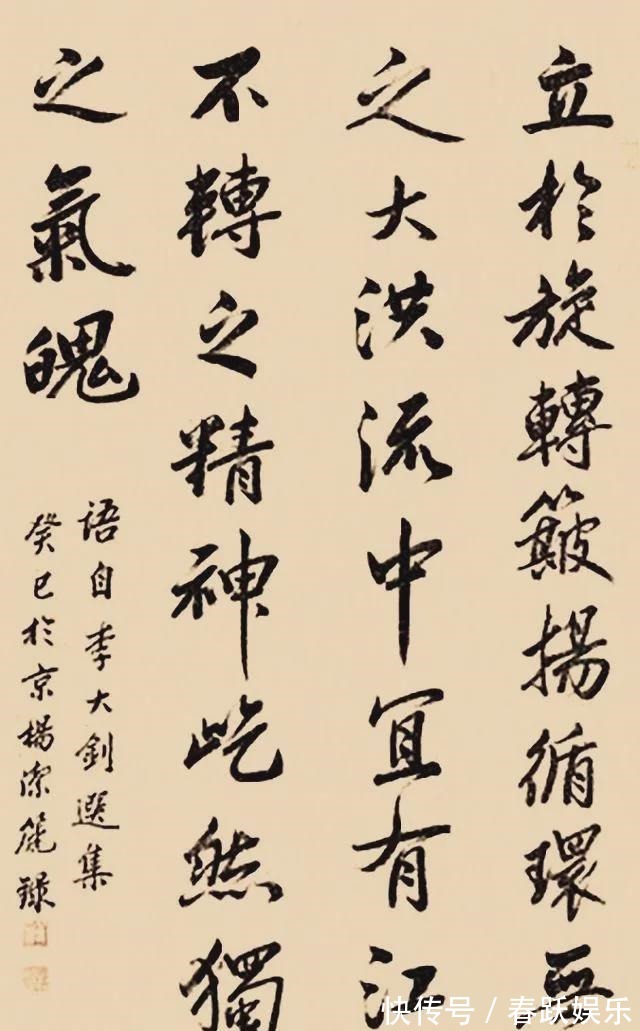 立於旋轉簸揚循環无
之大洪流中宜有江
不轉之精神屹然獨
之氣魄
语自李大釗選集
癸巳於京楊潔篪録
快传号 / 春跃娱乐